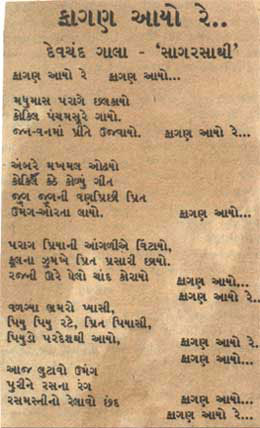 ફાગણ આયો રે..
દેવચંદ ગાલા - ‘સાગરસાથી’
ફાગણ આયો રે ફાગણ આયો...
મધુમાસ પરાગે છલકાયો
કોકિલ પંચમસૂરે ગાયો.
જન-વનમાં પ્રીતે ઉજવાયો. ફાગણ આયો રે...
અંબરે મખમલ ઓઢયો
કોકિલ કંઠે કોળ્યું ગીત
જુગ જુગની વણપ્રિછી પ્રિત
ઉમંગ-ઓરતા લાયો. ફાગણ આયો રે...
પરાગ પ્રિયાની આંગળીએ વિંટાયો,
ફૂલના ઝુમખે પ્રિત પ્રસારી છાયો.
રજની ઊરે પેલો ચાંદ કોરાયો ફાગણ આયો...
ફાગણ આયો રે..
વળગ્યા ભમરો પ્યાસી,
પિયુ પિયુ રટે, પ્રિત પિયાસી,
પિયુડો પરદેશથી આયો, ફાગણ આયો રે..
ફાગણ આયો...
આજ લુટાવો ઉમંગ
પુરીને રસના રંગ
રસમસ્તીનો રેલાવો છંદ ફાગણ આયો...
ફાગણ આયો રે...